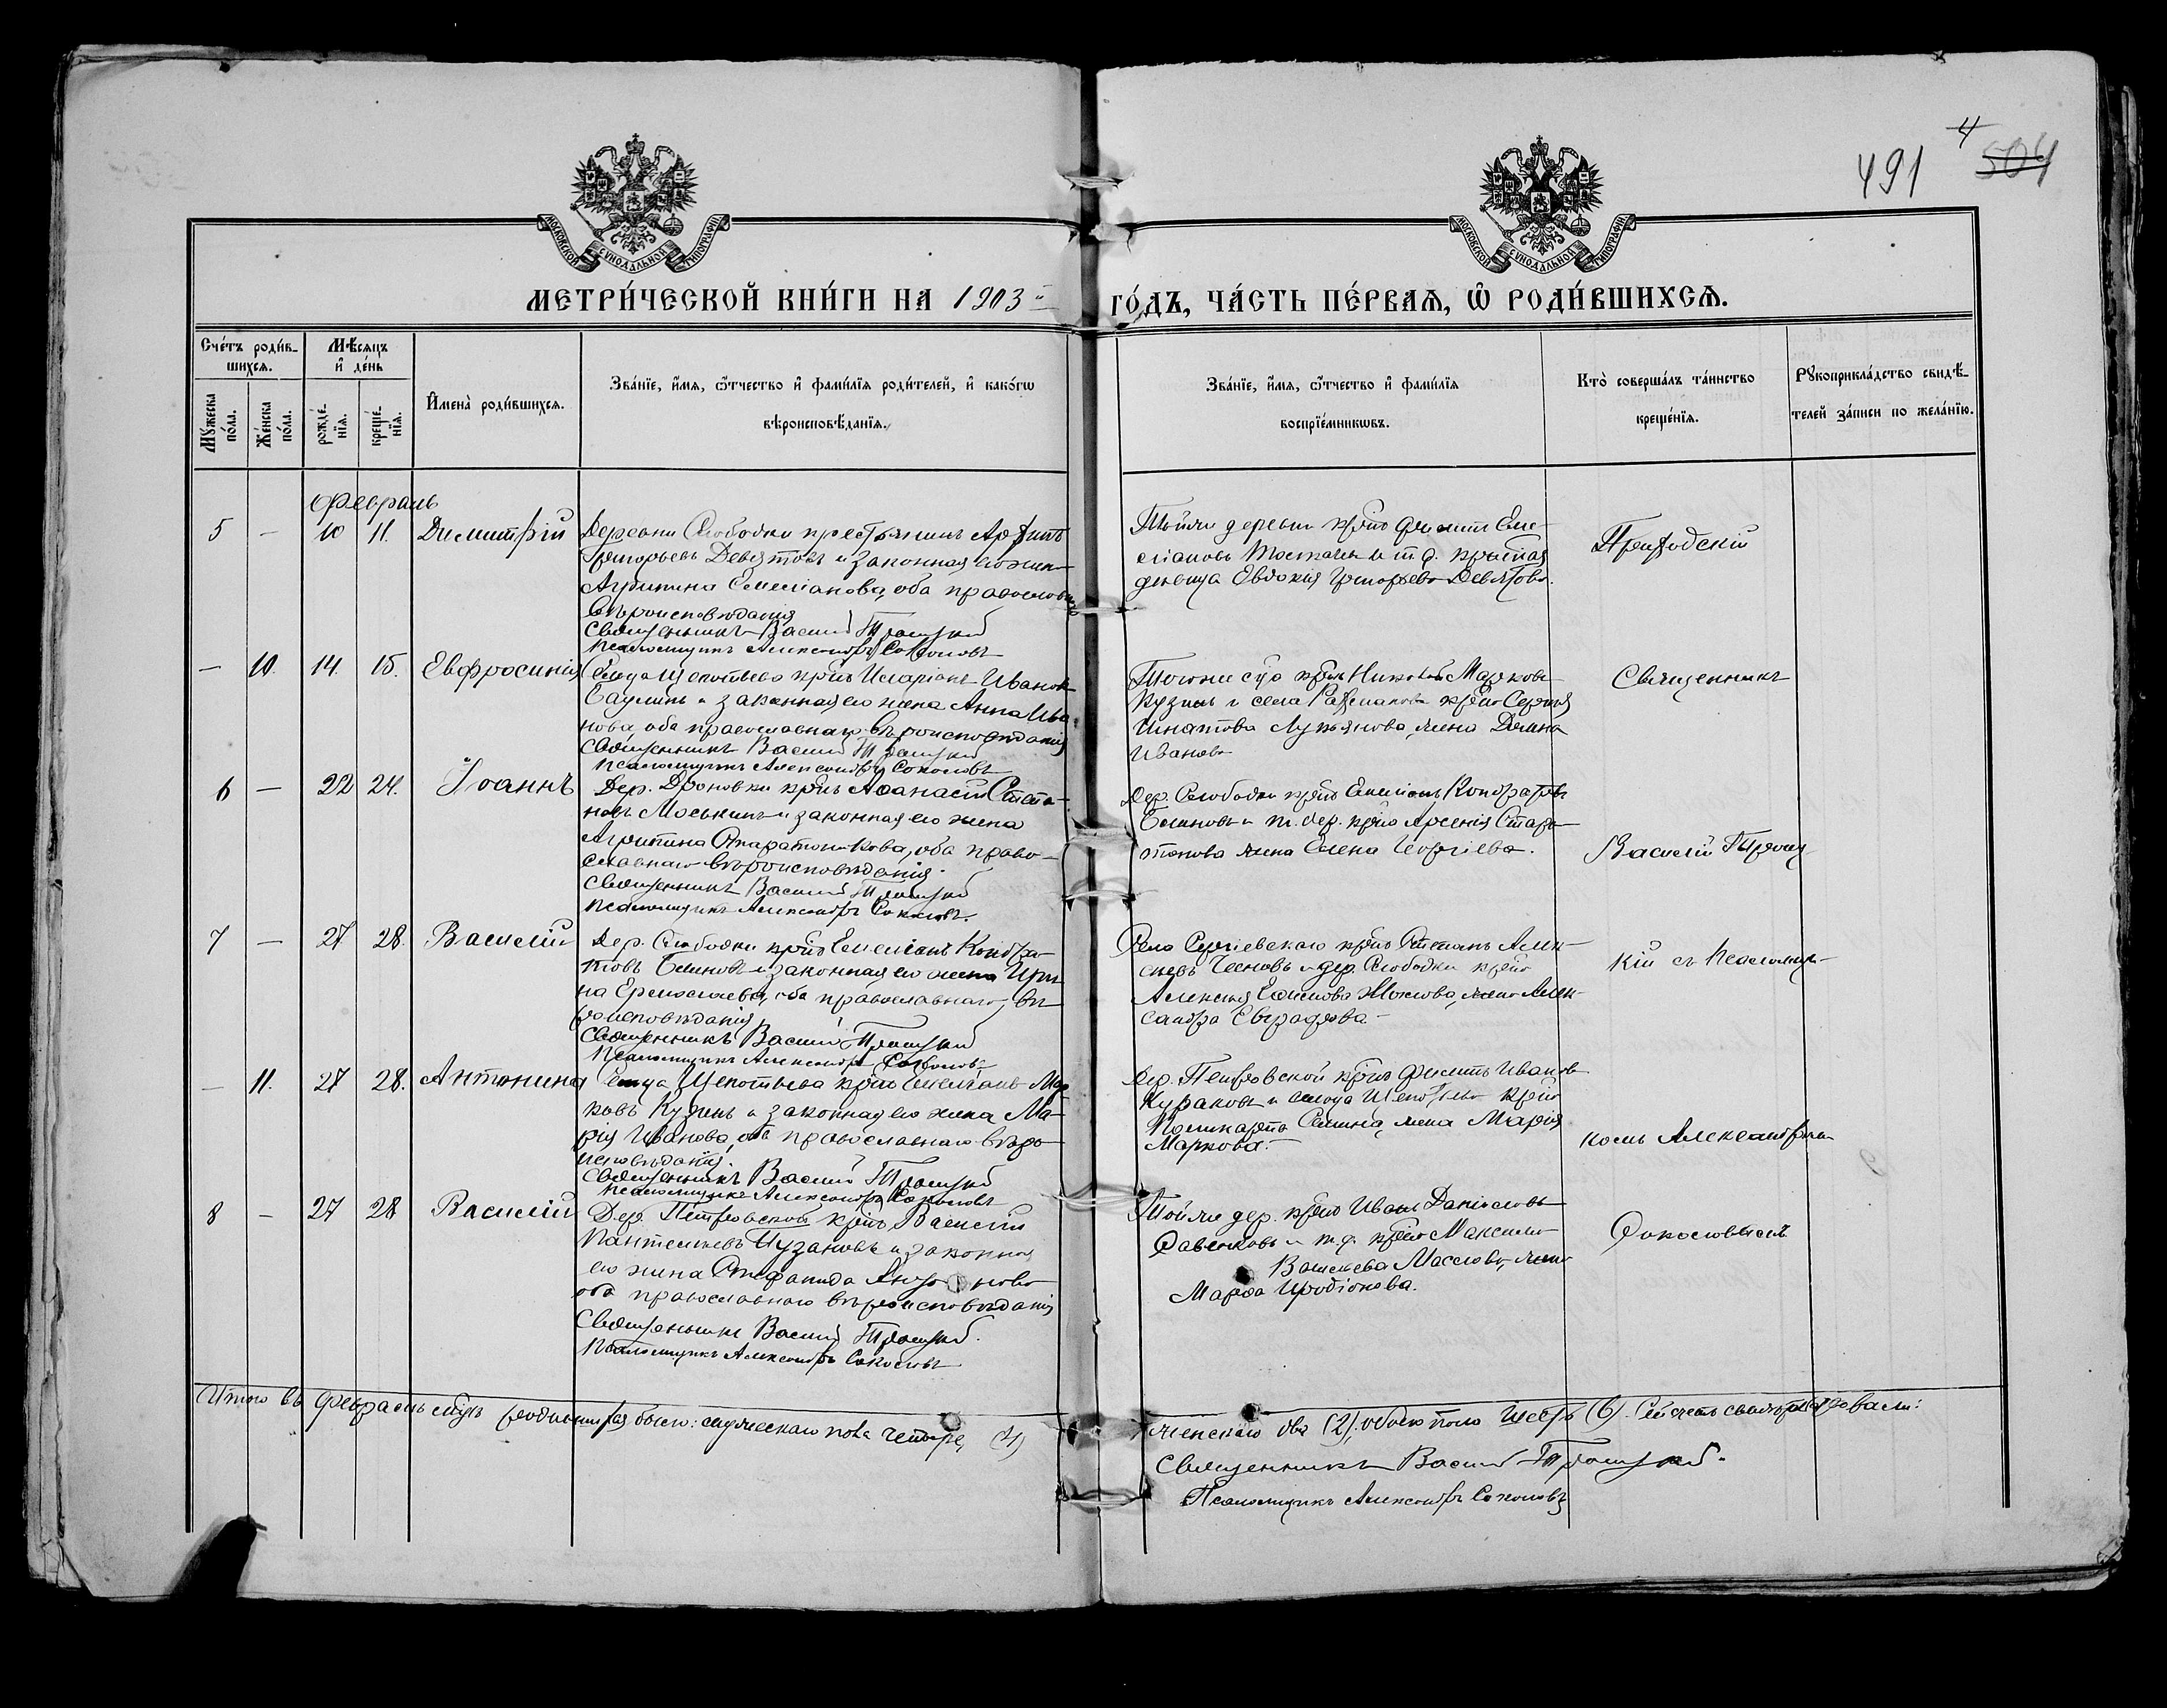 491 4 504
МОСКОВСКОЙ СУНОДАЛЬНОЙ ТИПОГРАФІИ
МОСКОВСКОЙ СУНОДАЛЬНОЙ ТИПОГРАФІИ
МЕТРИ́ЧЕСКОЙ КНИ́ГИ НА 1903й ГО́ДЪ, ЧА́СТЬ ПЕ́РВАѦ, Ѽ РОДИ́ВШИХСѦ.
Сче́тъ роди́в-
шихсѧ.
Мꙋжеска по́ла.
Же́нска по́ла.
Мѣ́сяцъ
и҆ де́нь
рожде́-
нїѧ.
креще́-
нїѧ.
И҆мена̀ роди́вшихсѧ.
Зва́нїе, и҆́мѧ, ѻ҆́тчество и҆ фами́лїѧ роди́телей, и҆ како́гѡ
вѣроисповѣ́данїѧ.
Зва́нїе, и҆́мѧ, ѻ҆́тчество и҆ фами́лїѧ
воспрїе́мникѡвъ.
Кто̀ соверша́лъ та́инство
креще́нїѧ.
Рꙋкоприкла́дство свидѣ́-
телей за́писи по жела́нїю.
Февраль
5 — 10 11. Димитрій
Деревни Слободки крестьянинъ Архипъ
Григорьевъ Девятовъ и законная его жена
Агрипина Емеліанова, оба православн.
вѣроисповѣданія
Священникъ Василій Троицкій
Псаломщикъ Александръ Соколовъ
Тойже деревни крнъ Филиппъ Еме-
ліановъ и т. д. крестная
девица Евдокія Григорьева Девятова.
Приходскій
— 10. 14. 15. Евфросинія
Сельца Щепотьева крнъ Иларіонъ Ивановъ
и законная его жена Анна Ива-
нова, оба православнаго вѣроисповѣданія
Священникъ Василій Троицкій
Псаломщикъ Александръ Соколовъ
Тогоже с-ца крнъ Николай Марковъ
Кузинъ и села крна Сергія
Игнатова Лукьянова, жена Домна
Иванова
Священникъ
6 — 22 24. Іоаннъ
Дер. Дроновки крнъ Аѳанасій Степа-
новъ Моськинъ и законная его жена
Агрипина оба право-
славнаго вѣроисповѣданія.
Священникъ Василій Троицкій
Псаломщикъ Александръ Соколовъ.
Дер. Слободки крнъ Емеліанъ Кондратовъ
Блиновъ и т. дер. крна Арсенія
жена Елена Георгіева.
Василій Троиц-
7 — 27 28. Василій
Дер. Слободки крнъ Емеліанъ Кондра-
товъ Блиновъ и законная его жена Ири-
на Ермолаева, оба православнаго вѣ-
роисповѣданія
Священникъ Василій Троицкій
Псаломщикъ Александръ Соколовъ
Села Сергіевскаго крнъ Степанъ Алек-
сеевъ и дер. Слободки крна
Алексія жена Алек-
сандра Евграфова
кій съ Псаломщи-
— 11. 27 28. Антонина
Сельца Щепотьева крнъ Емеліанъ Мар-
ковъ Кузинъ и законная его жена Ма-
рія Иванова, оба православнаго вѣро-
исповѣданія.
Священникъ Василій Троицкій
Псаломщикъ Александръ Соколовъ
Дер. Петровской крнъ Филиппъ Ивановъ
Кураковъ и сельца Щепотьева крна
Поликарпа жена Марія
Маркова.
комъ Александромъ
8 — 27 28 Василій
Дер. Петровской крнъ Василій
Пантелеевъ и законная
его жена Стефанида
оба православнаго вѣроисповѣданія
Священникъ Василій Троицкій.
Псаломщикъ Александръ Соколовъ
Тойже дер. крнъ Иванъ Даніиловъ
Савенковъ и т. д. крна Максима
Васильева Маслова, жена
Марѳа Иродіонова.
Соколовымъ
Итого въ Февралѣ мцѣ родившихся было: мужескаго пола четыре, (4)
женскаго два (2), обоего пола шесть (6). Сей счетъ свидѣтельствовали:
Священникъ Василій Троицкій.
Псаломщикъ Александръ Соколовъ